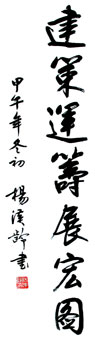 建策運籌展宏圖
甲午年冬初 楊漢軍書